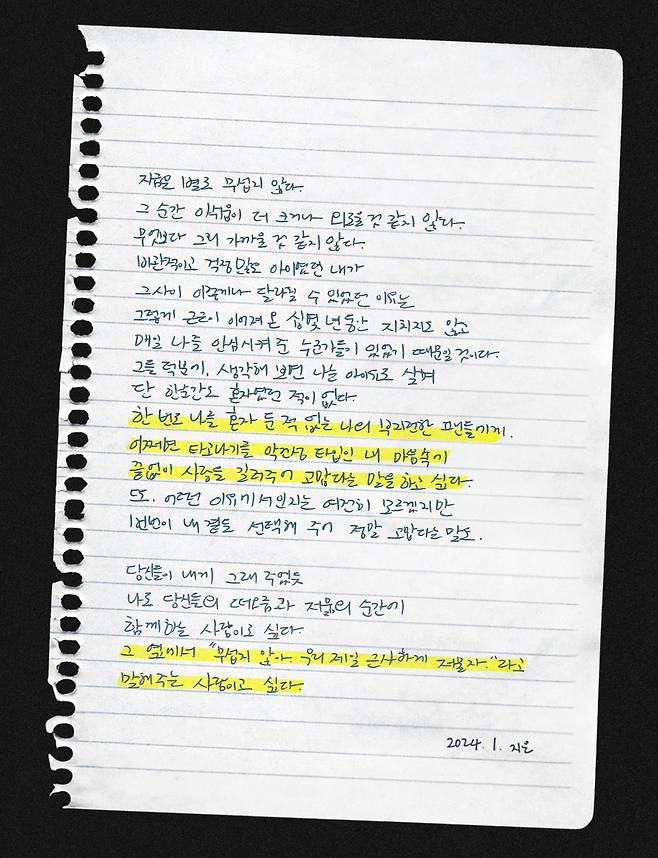 저묾은 별로 무섭지 않다.
그 순간 아쉬움이 더 크거나 외로울 것 같지 않다.
무엇보다 그리 가까울 것 같지 않다.
비관적이고 걱정 많던 아이였던 내가
그사이 이렇게나 달라질 수 있었던 이유는
그렇게 근근이 이어져 온 십몇 년 동안 지치지도 않고
매일 나를 안심시켜 준 누군가들이 있었기 때문일 것이다.
그들 덕분에, 생각해 보면 나는 아이유로 살며
단 한순간도 혼자였던 적이 없다.
한 번도 나를 혼자 둔 적 없는 나의 부지런한 팬들에게.
어쩌면 타고나기를 악건성 타입인 내 마음속에
끝없이 사랑을 길러주어 고맙다는 말을 하고 싶다.
또, 어떤 이유에서인지는 여전히 모르겠지만
번번이 내 곁을 선택해 주어 정말 고맙다는 말도.
당신들이 내게 그래 주었듯
나도 당신들의 떠오름과 저묾의 순간에
함께하는 사람이고 싶다.
그 옆에서 "무섭지 않아. 우리 제일 근사하게 저물자."라고
말해주는 사람이고 싶다.
2024. 1. 지은